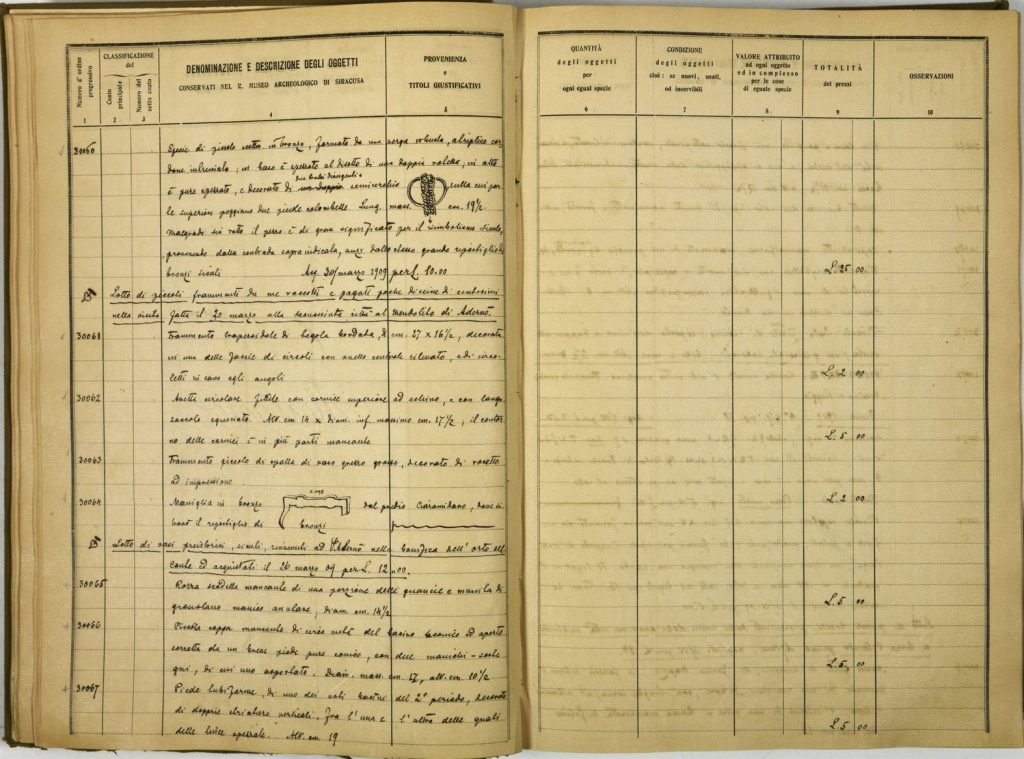 Numero d'ordine progressivo
CLASSIFICAZIONE del
Conto principale
Numero del sotto conto
DENOMINAZIONE E DESCRIZIONE DEGLI OGGETTI
CONSERVATI NEL R. MUSEO ARCHEOLOGICO DI SIRACUSA
PROVENIENZA
e
TITOLI GIUSTIFICATIVI
1 2 3 4 5
30060 Specie di piccolo scettro in bronzo, formato da una verga robusta,
in basso è spezzato al disotto di una doppia voluta; in alto
due tratti
è pure spezzato, e decorato di una doppia semicerchio sulla cui par-
te superiore poggiano due piccole colombelle. Lung. mass. cm. 19 1/2
Malgrado sia rotto il pezzo è di gran significato per il simbolismo siculo,
provenendo dalla contrada sopra indicata, anzi dallo stesso grande ripostiglio di
bronzi siculi. Acq. 30/marzo 1909 per L. 10.00
Lotto di piccoli frammenti da me raccolti e pagati poche diecine di centesimi
nella visita fatta il 30 marzo alla sconosciuta città al Mendolito di Adernò.
30061 Frammento trapezoidale di tegola bordata, di cm. 27 x 16 1/2, decorata
in una delle faccie di circoli con anello centrale rilevato, e di circo-
letti in cavo agli angoli
30062 Aretta circolare fittile con cornice superiore ad echino, e con largo
zoccolo Alt. cm. 14 x diam. inf. massimo cm. 17 1/2; il contor-
no delle cornici è in più parti mancante
30063 Frammento piccolo di spalla di vaso grezzo grosso, decorato di rosette
ad impressione.
30064 Maniglia in bronzo dal predio Ciaramidaro, dove si
trovò il ripostiglio di bronzi
Lotto di vasi preistorici, siculi, rinvenuti ad Adernò nella bonifica dell'orto del
Conte ed acquistati il 26 marzo 09 per L. 12.00.
30065 Rozza scodella mancante di una porzione delle guancie e munita di
grossolano manico anulare, diam. cm. 14 1/2
30066 Piccola coppa mancante di circa metà del bacino conico ed aperto
sorretta da un breve piede pure conico, con due manichi-
di cui uno asportato. Diam. mass. cm. 17, alt. cm. 10 1/2
30067 Piede tubiforme, di uno dei soliti bacini del 2° periodo, decorato
di doppie verticali, fra l'una e l'altra delle quali
delle linee spezzate. Alt. cm. 19
QUANTITÀ
degli oggetti
per
ogni egual specie
CONDIZIONE
degli oggetti
cioè: se nuovi, usati,
od inservibili
VALORE ATTRIBUITO
ad ogni oggetto
ed in complesso
per le cose
di eguale specie
TOTALITÀ
dei prezzi
OSSERVAZIONI
6 7 8 9 10
L. 25 00
L. 2 00
L. 5 00
L. 2 00
L. 5 00
L. 5 00
L. 5 00